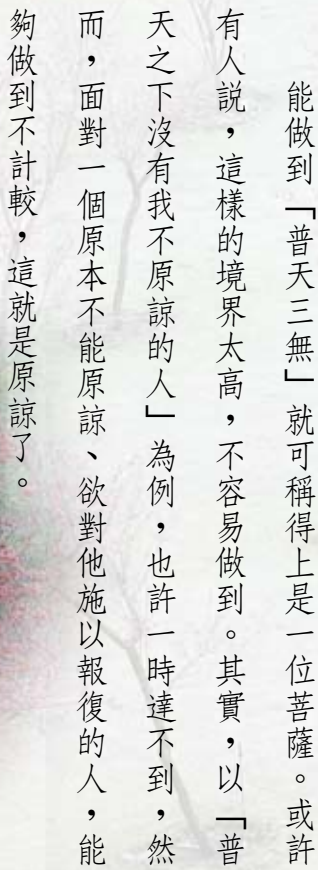 能做到「普天三無」就可稱得上是一位菩薩。或許
有人說，這樣的境界太高，不容易做到。其實，以「普
天之下沒有我不原諒的人」為例，也許一時達不到，然
而，面對一個原本不能原諒、欲對他施以報復的人，能
夠做到不計較，這就是原諒了。